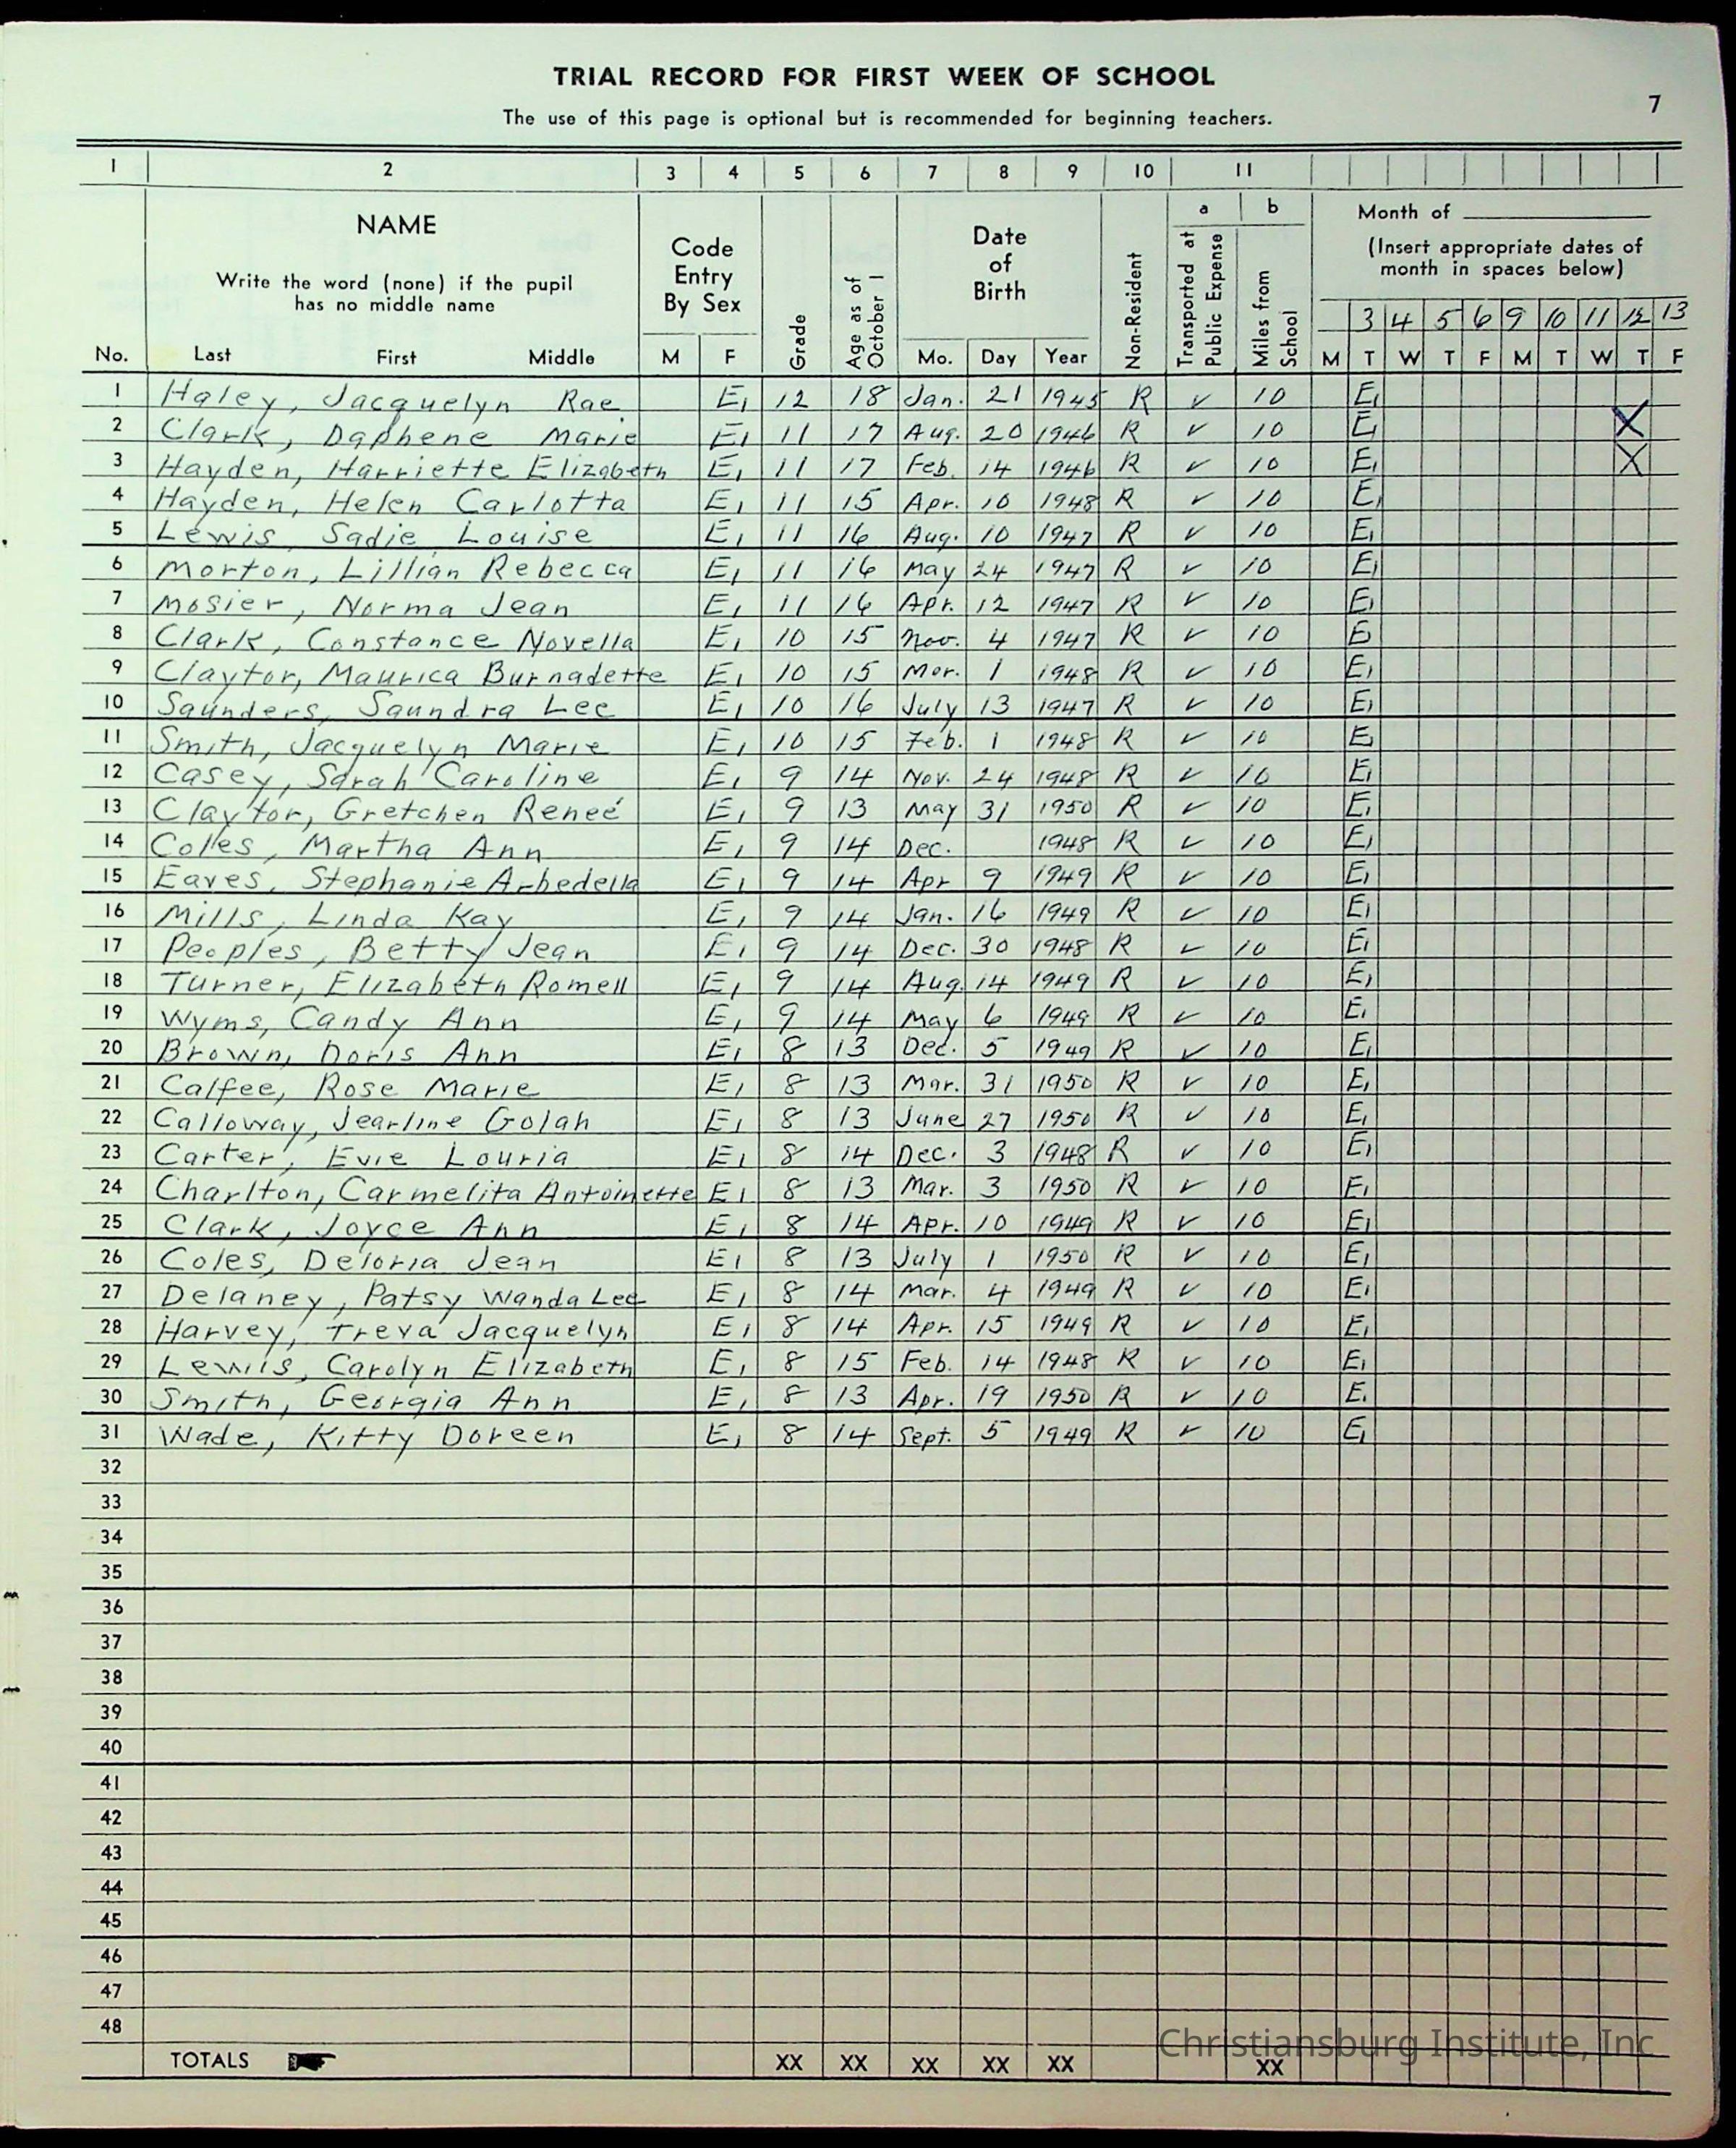 TRIAL RECORD FOR FIRST WEEK OF SCHOOL
The use of this page is optional but is recommended for beginning teachers.
7
1 2 3 4 5 6 7 8 9 10 11
NAME
Write the word (none) if the pupil has no middle name
Last First Middle
No.
Code Entry By Sex
M F
Grade
Age as of October 1
Date of Birth
Mo. Day Year
Non-Resident
a b
Transported at Public Expense
Miles from School
Month of
(Insert appropriate dates of month in spaces below)
3 4 5 6 9 10 11 12 13
M T W T F M T W T F
1 Haley, Jacquelyn Rae E1 12 18 Jan. 21 1945 R ✓ 10 E1
2 Clark, Daphene Marie E1 11 17 Aug. 20 1946 R ✓ 10 E1 X
3 Hayden, Harriette Elizabeth E1 11 17 Feb. 14 1946 R ✓ 10 E1 X
4 Hayden, Helen Carlotta E1 11 15 Apr. 10 1948 R ✓ 10 E1
5 Lewis, Sadie Louise E1 11 16 Aug. 10 1947 R ✓ 10 E1
6 Morton, Lillian Rebecca E1 11 16 May 24 1947 R ✓ 10 E1
7 Mosier, Norma Jean E1 11 16 Apr. 12 1947 R ✓ 10 E1
8 Clark, Constance Novella E1 10 15 Nov. 4 1947 R ✓ 10 E1
9 Claytor, Maurica Burnadette E1 10 15 Mar. 1 1948 R ✓ 10 E1
10 Saunders, Saundra Lee E1 10 16 July 13 1947 R ✓ 10 E1
11 Smith, Jacquelyn Marie E1 10 15 Feb. 1 1948 R ✓ 10 E1
12 Casey, Sarah Caroline E1 9 14 Nov. 24 1948 R ✓ 10 E1
13 Claytor, Gretchen Reneé E1 9 13 May 31 1950 R ✓ 10 E1
14 Coles, Martha Ann E1 9 14 Dec. 1948 R ✓ 10 E1
15 Eaves, Stephanie Arbedella E1 9 14 Apr 9 1949 R ✓ 10 E1
16 Mills, Linda Kay E1 9 14 Jan. 16 1949 R ✓ 10 E1
17 Peoples, Betty Jean E1 9 14 Dec. 30 1948 R ✓ 10 E1
18 Turner, Elizabeth Romell E1 9 14 Aug. 14 1949 R ✓ 10 E1
19 Wyms, Candy Ann E1 9 14 May 6 1949 R ✓ 10 E1
20 Brown, Doris Ann E1 8 13 Dec. 5 1949 R ✓ 10 E1
21 Calfee, Rose Marie E1 8 13 Mar. 31 1950 R ✓ 10 E1
22 Calloway, Jearline Golah E1 8 13 June 27 1950 R ✓ 10 E1
23 Carter, Evie Louria E1 8 14 Dec. 3 1948 R ✓ 10 E1
24 Charlton, Carmelita Antoinette E1 8 13 Mar. 3 1950 R ✓ 10 E1
25 Clark, Joyce Ann E1 8 14 Apr. 10 1949 R ✓ 10 E1
26 Coles, Deloria Jean E1 8 13 July 1 1950 R ✓ 10 E1
27 Delaney, Patsy Wanda Lee E1 8 14 Mar. 4 1949 R ✓ 10 E1
28 Harvey, Treva Jacquelyn E1 8 14 Apr. 15 1949 R ✓ 10 E1
29 Lewis, Carolyn Elizabeth E1 8 15 Feb. 14 1948 R ✓ 10 E1
30 Smith, Georgia Ann E1 8 13 Apr. 19 1950 R ✓ 10 E1
31 Wade, Kitty Doreen E1 8 14 Sept. 5 1949 R ✓ 10 E1
32
33
34
35
36
37
38
39
40
41
42
43
44
45
46
47
48
Christiansburg Institute, Inc
TOTALS XX XX XX XX XX XX